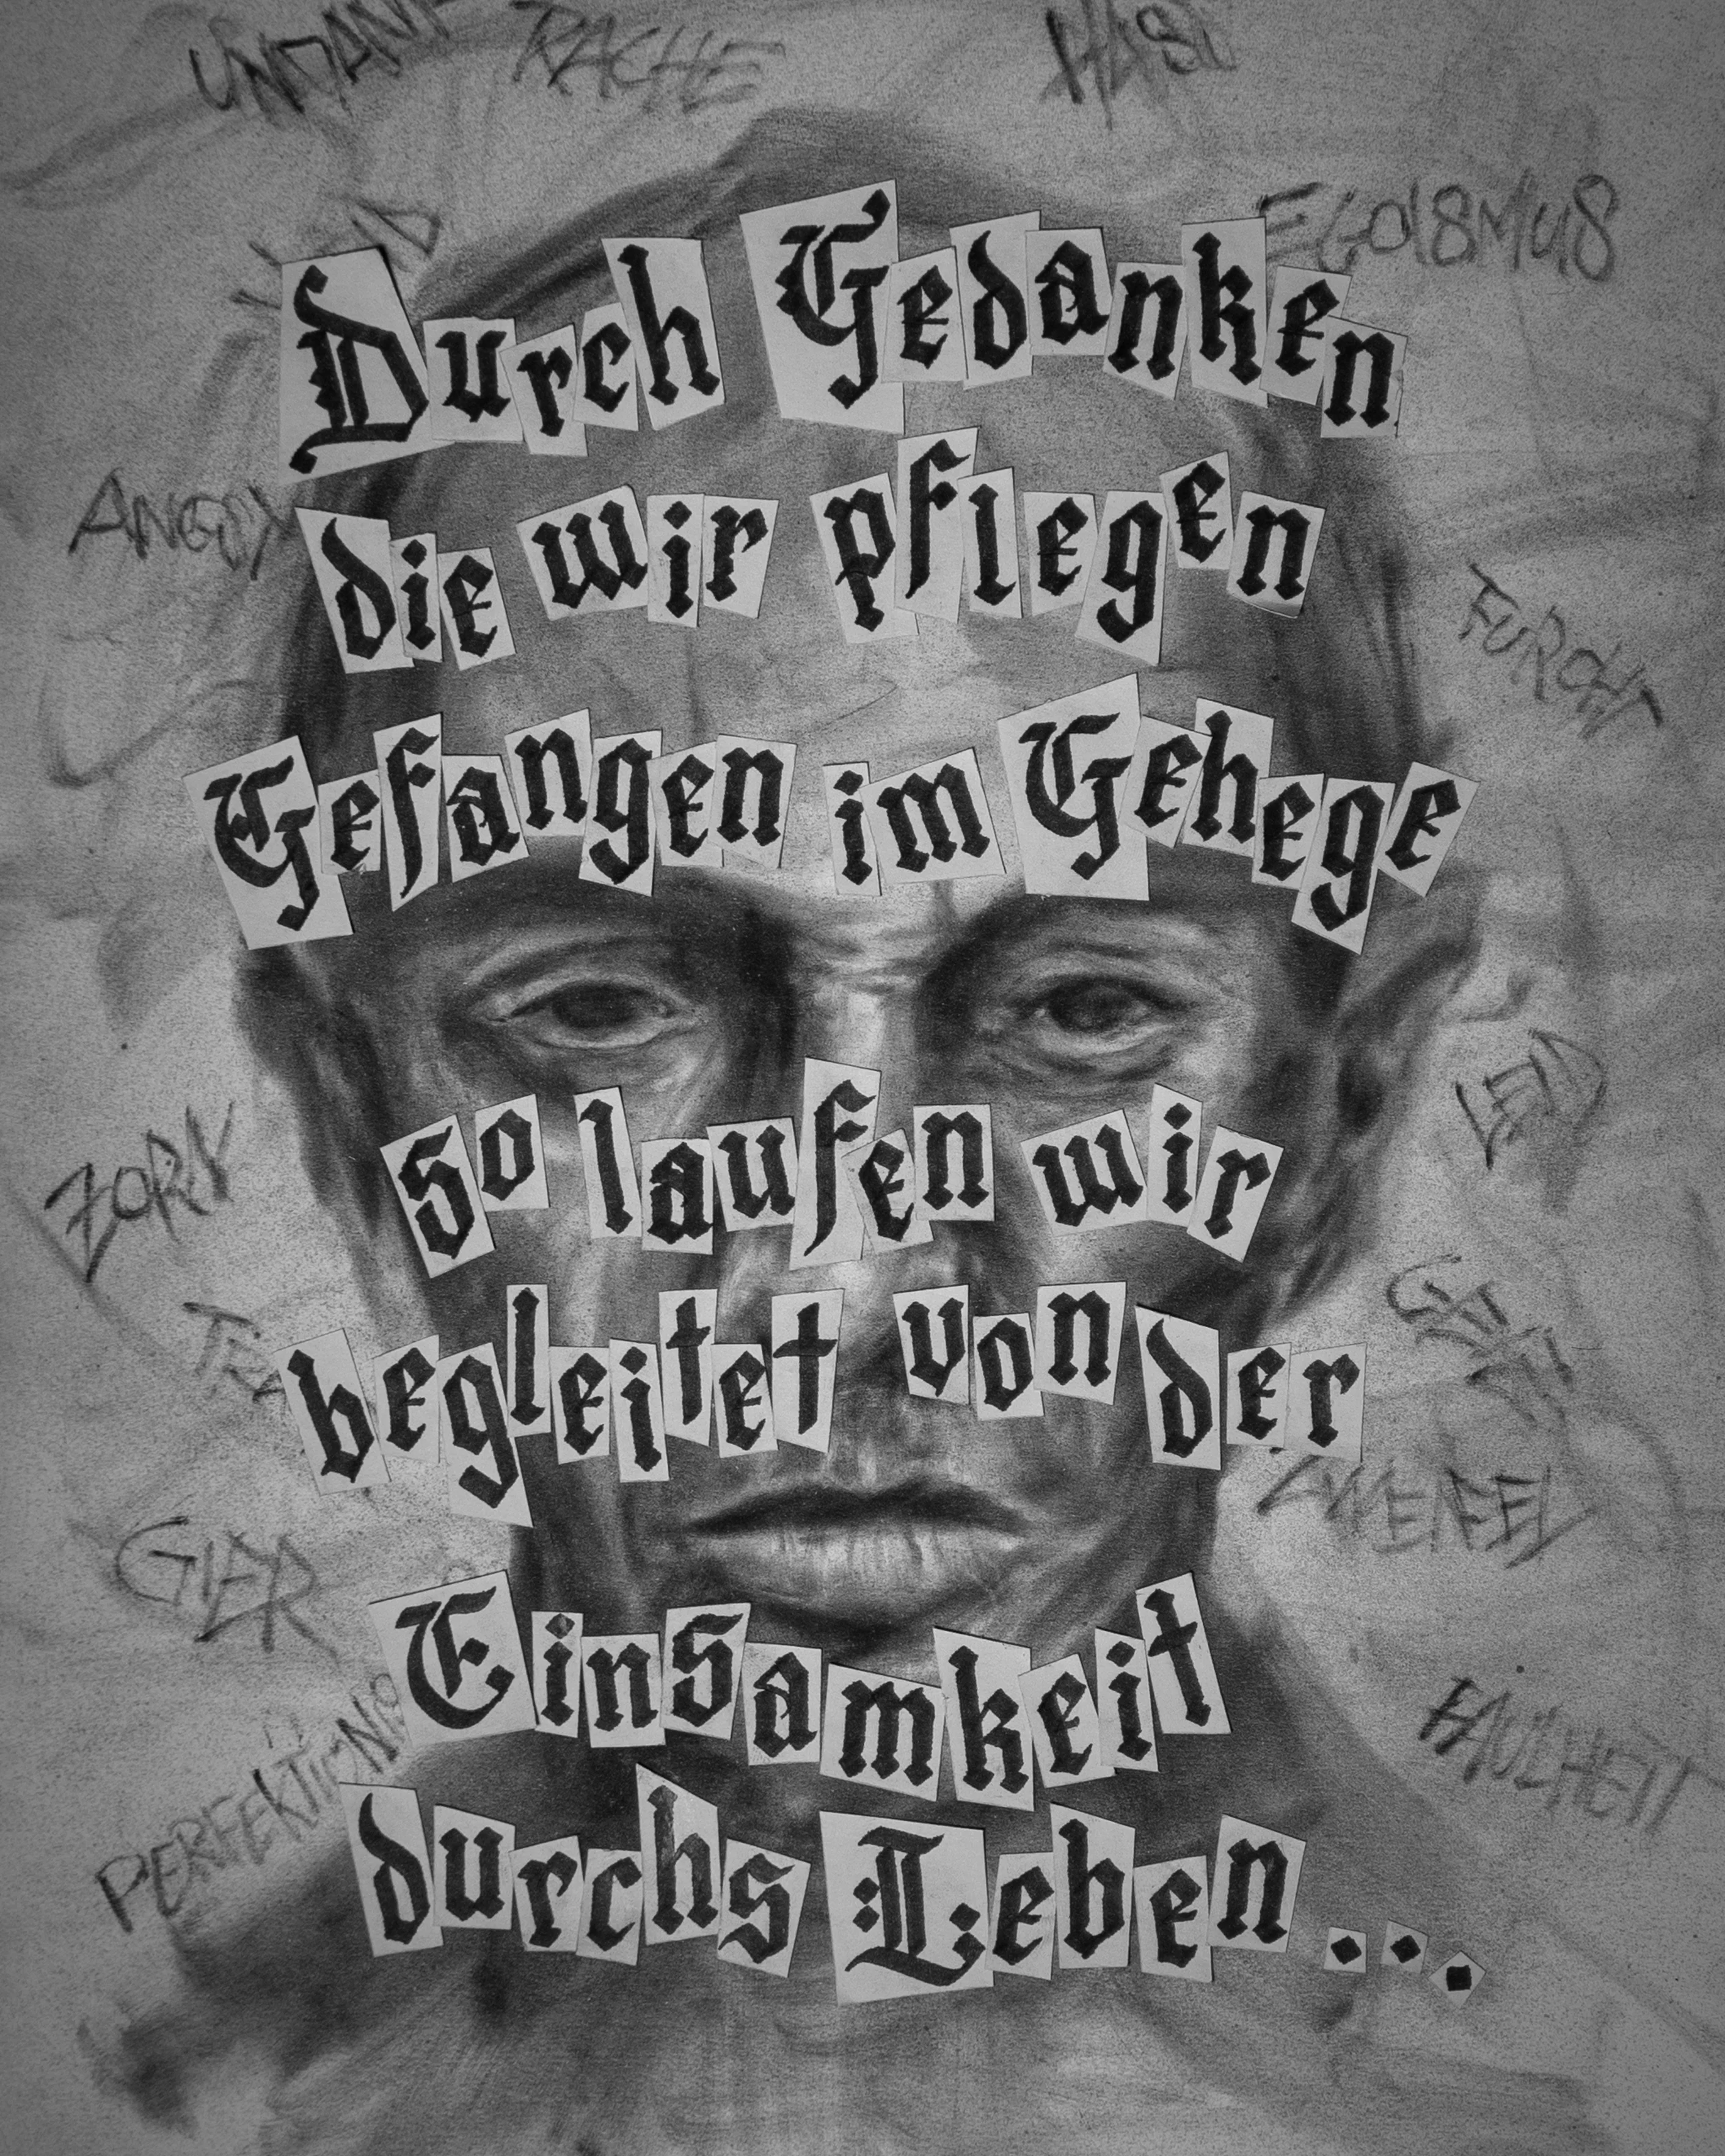 RACHE
HASS
EGOISMUS
Durch Gedanken
ANGST
die wir pflegen
FURCHT
Gefangen im Gehege
LEID
So laufen wir
ZORN
begleitet von der
ZWEIFEL
GIER
Einsamkeit
FAULHEIT
durchs Leben...